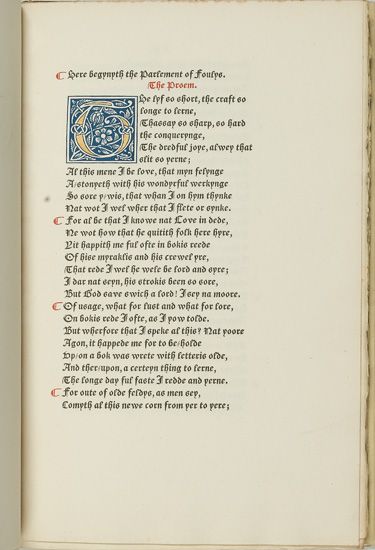 Here begynyth the Parlement of Foulys.
The Proem.
The lyf so short, the craft so
longe to lerne,
Thassay so sharp, so hard
the conquerynge,
The dredful joye, alwey that
slit so yerne;
Al this mene I be love, that myn felynge
Astonyeth with his wondyrful werkynge
So sore ywis, that whan I on hym thynke
Nat wot I wel wher that I flete or synke.
For al be that I knowe nat Love in dede,
Ne wot how that he quitith folk here hyre,
Yit happith me ful ofte in bokis reede
Of hise myraklis and his crewel yre,
That rede I wel he wele be lord and syre;
I dar nat seyn, his strokis been so sore,
But God save swich a lord! I sey na moore.
Of usage, what for lust and what for lore,
On bokis rede I ofte, as I yow tolde.
But wherfore that I speke al this? Nat yoore
Agon, it happede me for to beholde
Upon a bok was wrete with letteris olde,
And therupon, a certeyn thing to lerne,
The longe day ful faste I redde and yerne.
For oute of olde feldys, as men sey,
Comyth al this newe corn from yer to yere;